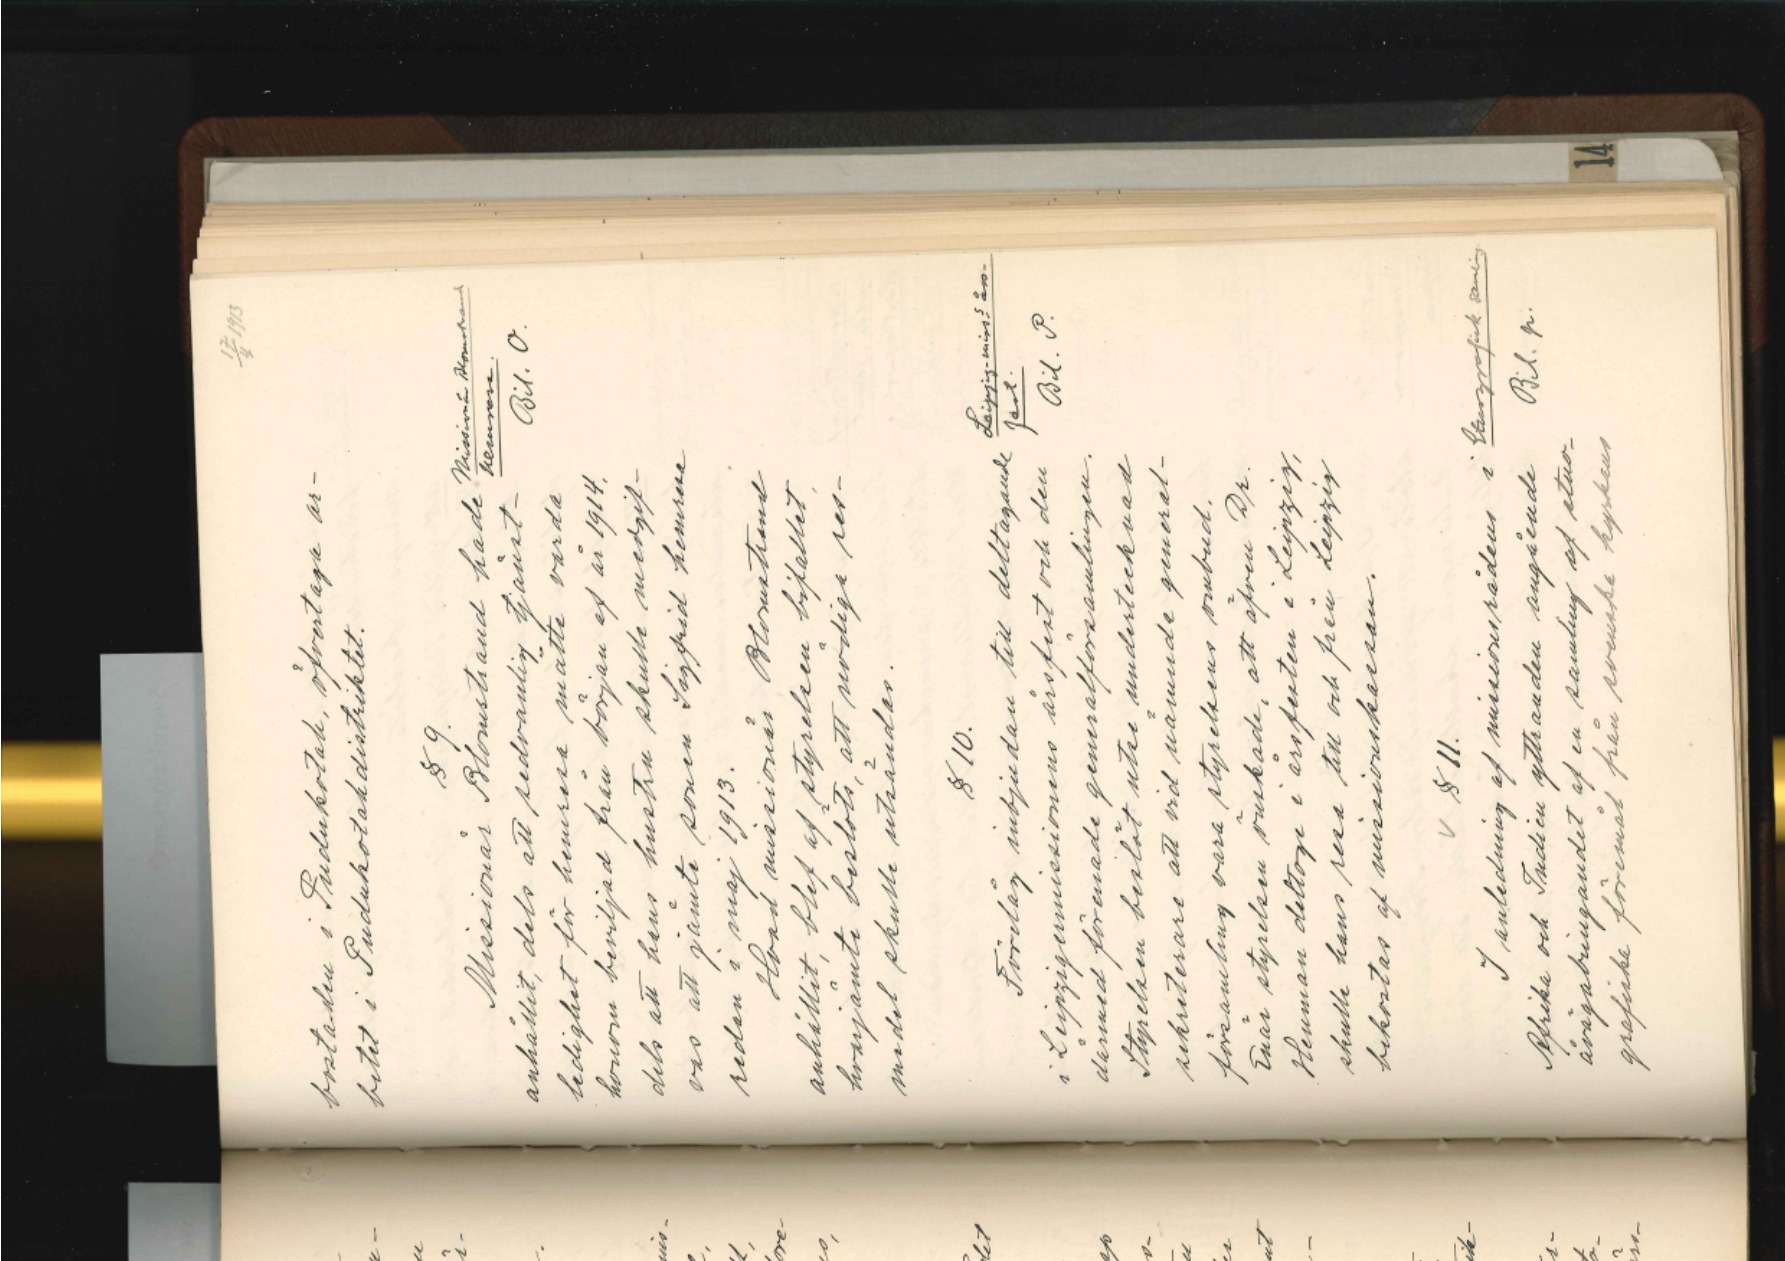 17/4 1913
bostaden i Pudukotah, öfvertaga ar-
betet i Pudukotahdistriktet.
§ 9.
Missionär Blomstrand hade
anhållit, dels att sedvanlig tjänst-
ledighet för hemresa måtte varda
honom beviljad från början af år 1914,
dels att hans hustru skulle medgif-
vas att jämte sonen Sigfrid hemresa
redan i maj 1913.
Hvad missionär Blomstrand
anhållit, blef af styrelsen bifallet,
hvarjämte beslöts, att nödiga res-
medel skulle utsändas.
Missionär Blomstrands
hemresa.
Bil. O.
§ 10.
Förelåg inbjudan till deltagande
i Leipzigermissionens årsfest och den
därmed förenade generalförsamlingen.
Styrelsen beslöt utse undertecknad
sekreterare att vid nämnde general-
församling vara styrelsens ombud.
Enär styrelsen önskade, att äfven Dr.
Heuman deltoge i årsfesten i Leipzig,
skulle hans resa till och från Leipzig
bekostas af missionskassan.
Leipzig-miss:s års-
fest.
Bil. P.
v § 11.
I anledning af missionsrådens i
Afrika och Indien yttranden angående
åvägabringandet af en samling af etno-
grafiska föremål från svenska kyrkans
Etnografisk samling
Bil. q.
14